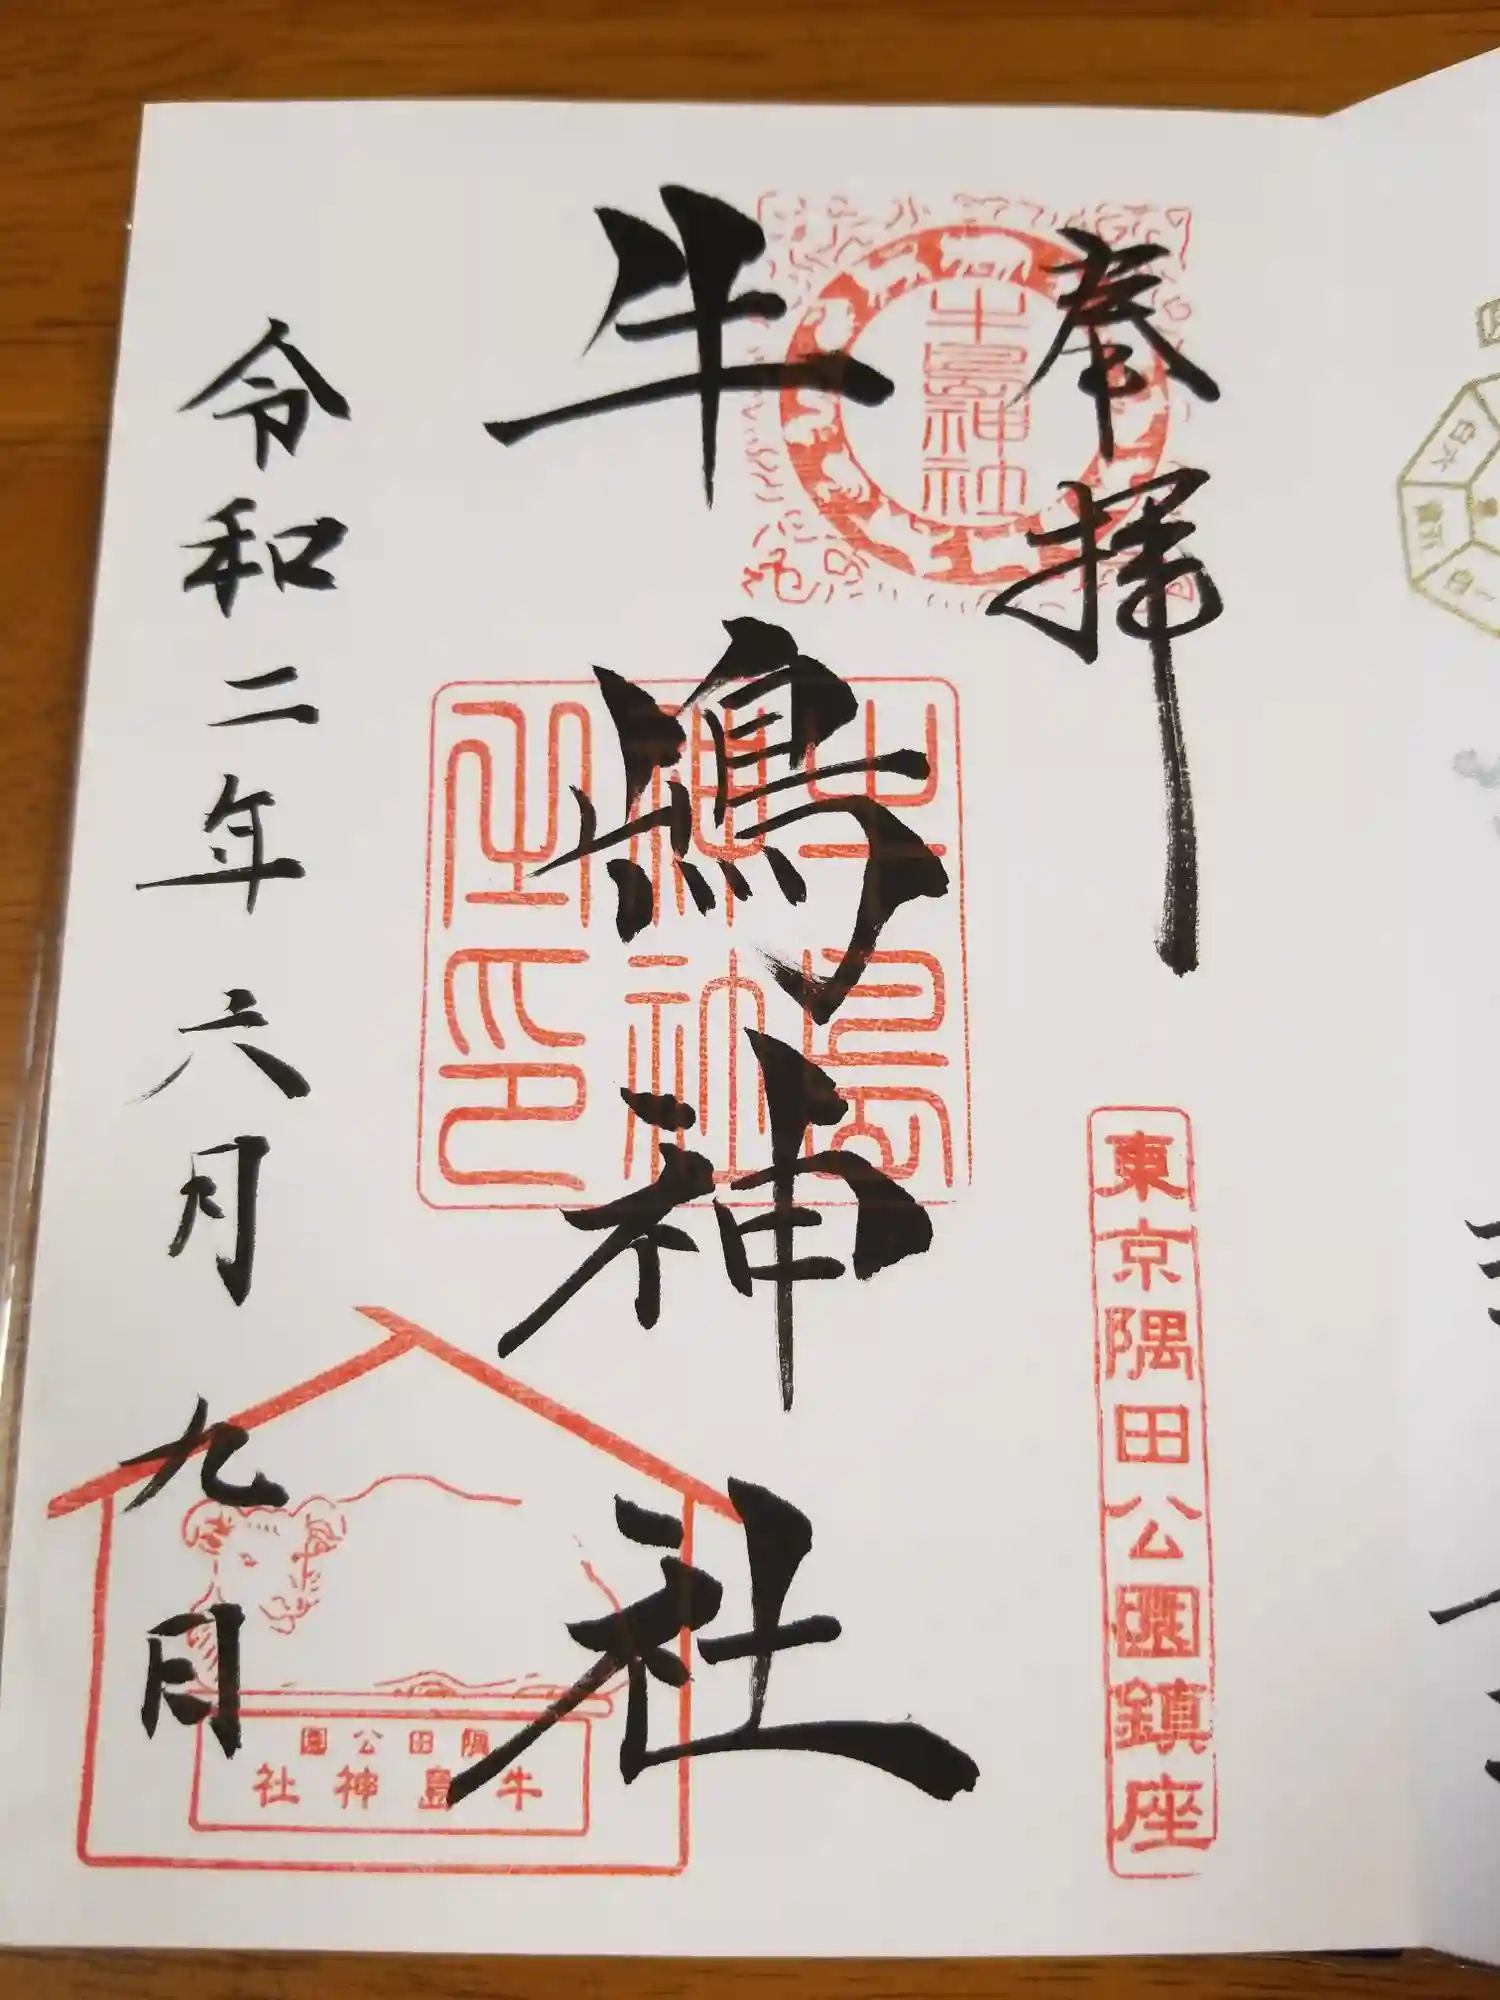 奉拝
東京隅田公園鎮座
牛嶋神社
牛嶋神社
牛嶋神社之印
令和二年六月九日
隅田公園
牛島神社